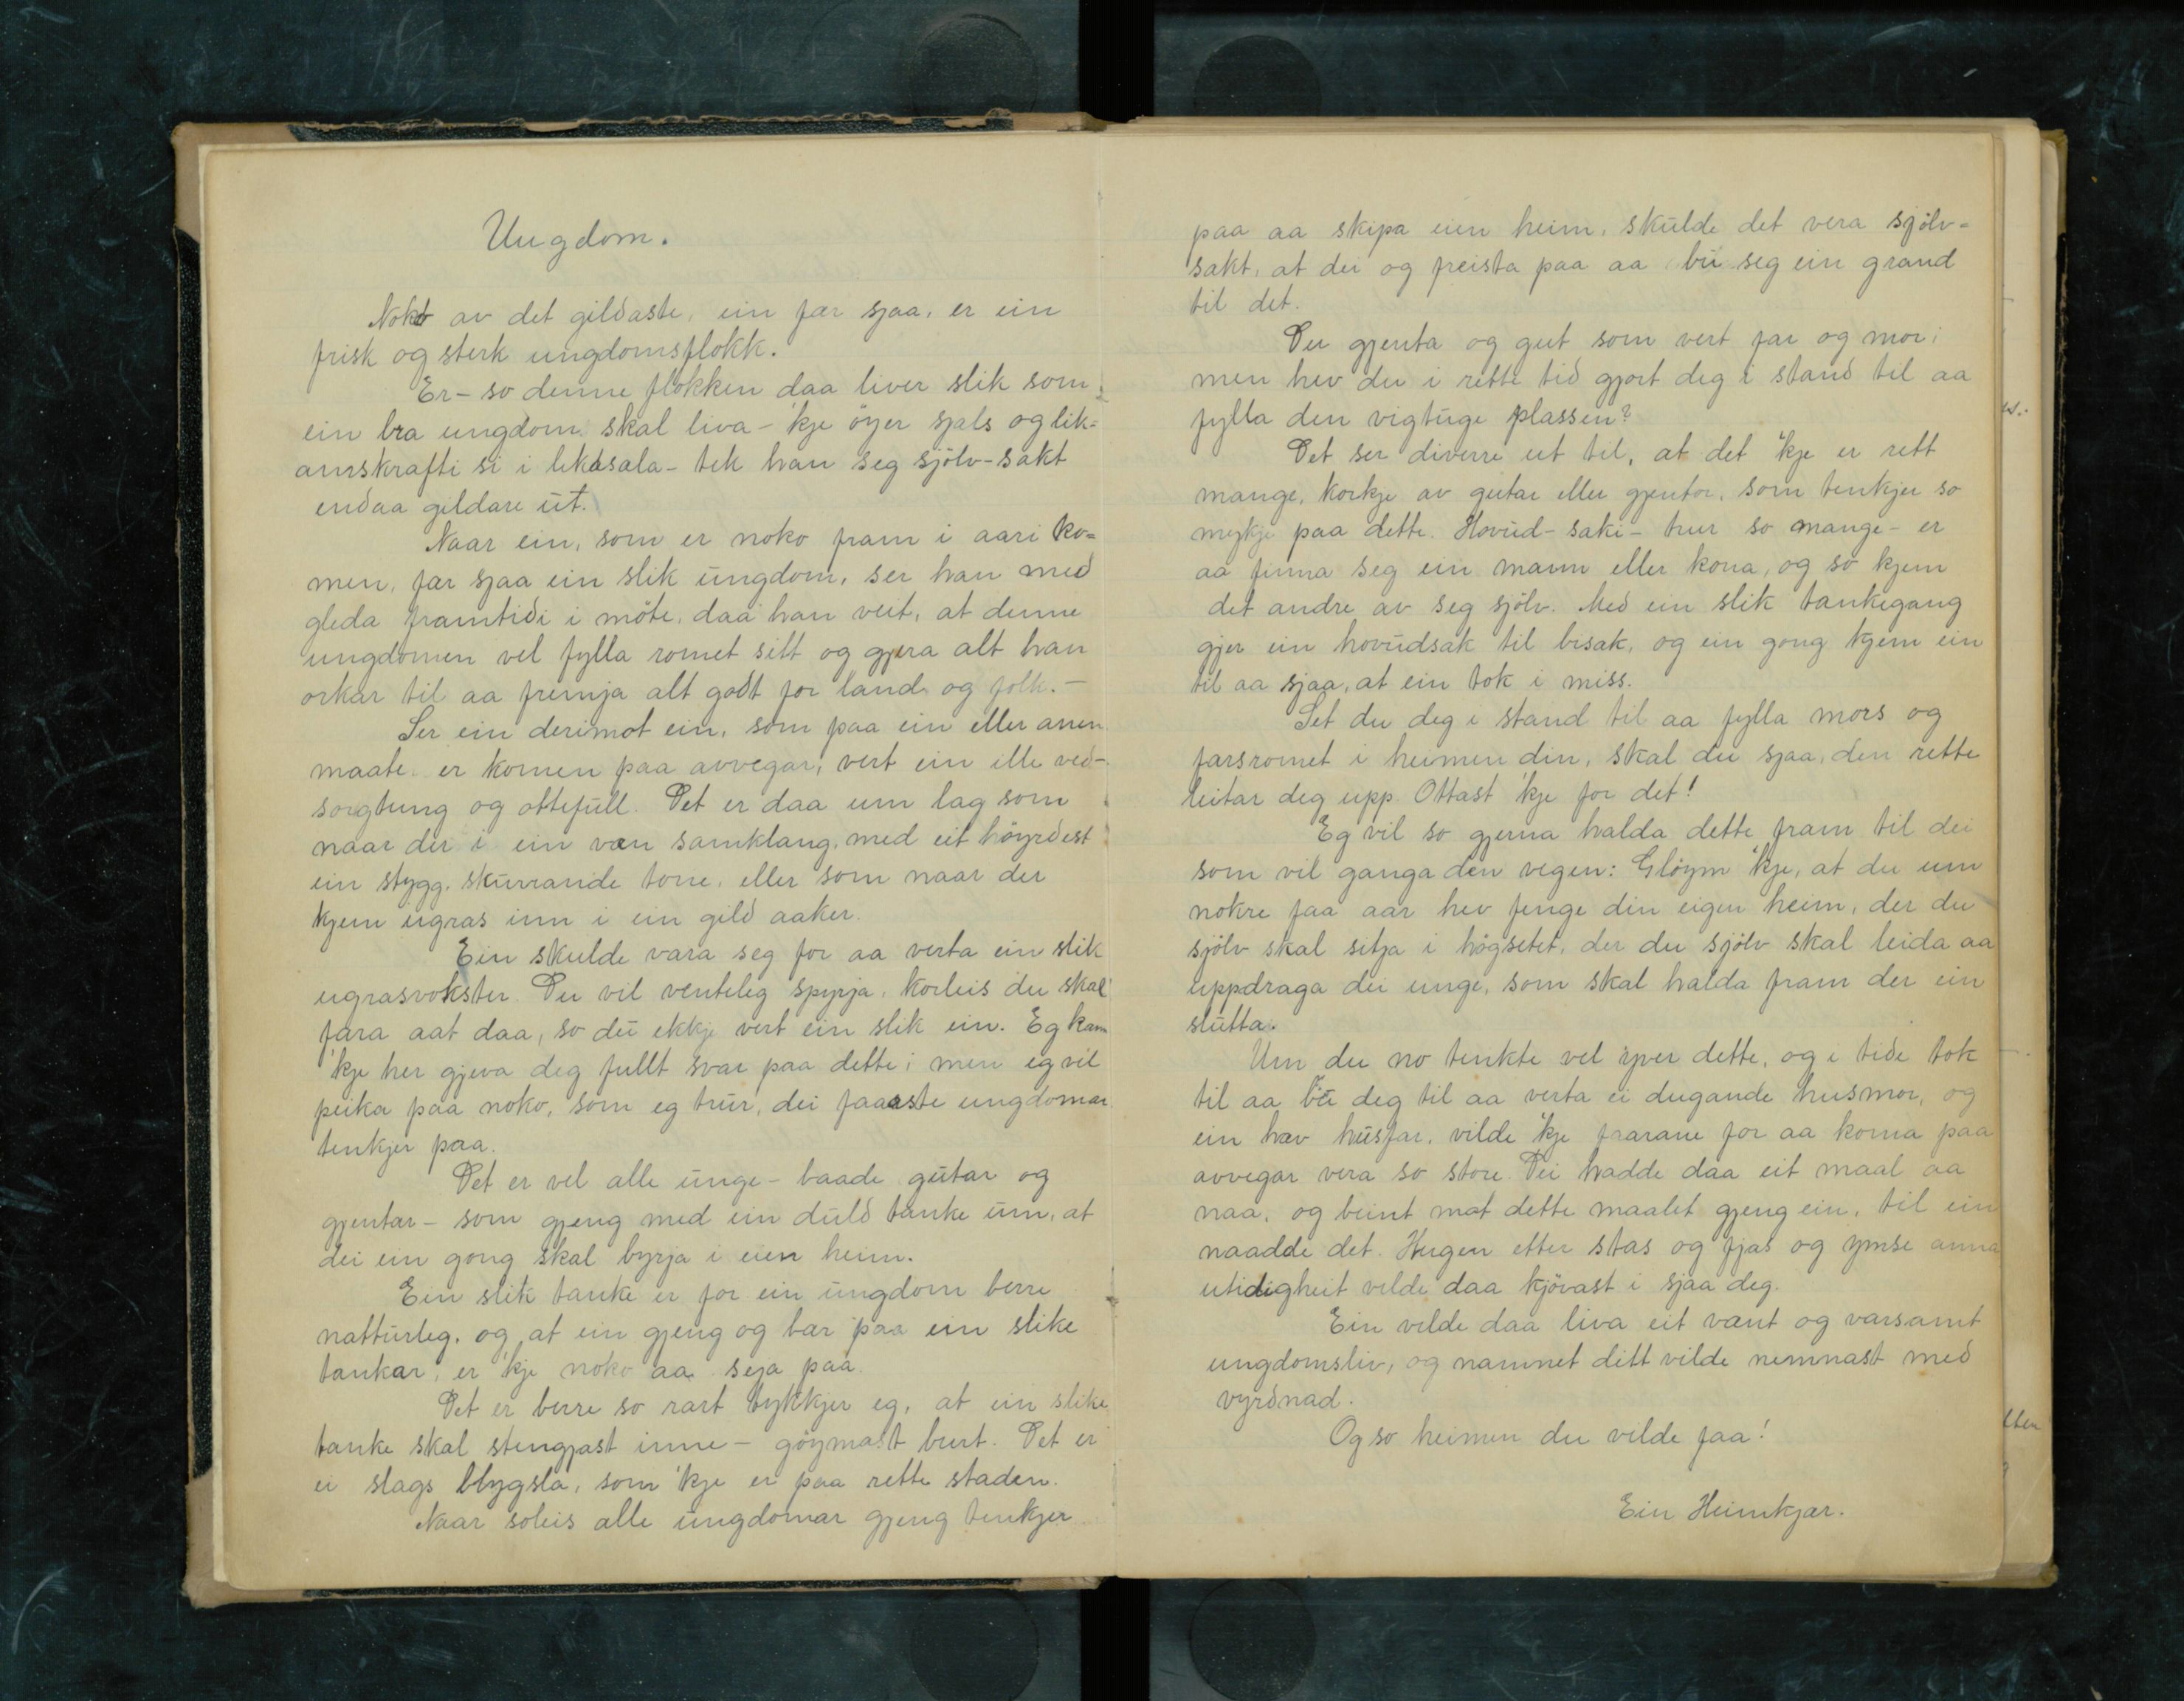 Ungdom.
Noko av det gildaste, ein fær sjaa, er ein
frisk og sterk ungdomsflokk.
Er- so denne flokken daa liver slik som
ein bra ungdom skal liva - 'kje öyer sjæls og lik-
amskrafti si i likesæla - tek han seg sjölv-sakt
endaa gildare ut.
Naar ein, som er noko fram i aari ko-
men, fær sjaa ein slik ungdom, ser han med
gleda framtidi i möte, daa han veit, at denne
ungdomen vel fylla romet sitt og gjera alt han
orkar til aa fremja alt godt for land og folk. -
Ser ein derimot ein, som paa ein eller annen
maate er komen paa avvegar, vert ein ille ved-
sorgtung og ottefull. Det er daa um lag som
naar der i ein væn samklang, med eit höyrdest
ein stygg, skurrande tone, eller som naar der
kjem ugras inn i ein gild aaker.
Ein skulde vara seg for aa verta ein slik
ugrasvokster. Du vil venteleg spyrja, korleis du skal
fara aat daa, so du ekkje vert ein slik ein. Eg kann
'kje her gjeva deg fullt svar paa dette; men eg vil
peika paa noko, som eg trur, dei faaaste ungdomar
tenkjer paa.
Det er vel alle unge - baade gutar og
gjentar - som gjeng med ein duld tanke um, at
dei ein gong skal byrja i eien heim.
Ein slik tanke er for ein ungdom berre
natturleg, og at ein gjeng og bær paa ein slike
tankar, er 'kje noko aa seja paa.
Det er berre so rart tykkjer eg, at ein slike
tanke skal stengjast inne - göymast burt. Det er
ei slags blygsla, som 'kje er paa rette staden.
Naar soleis alle ungdomar gjeng tenkjer
paa aa skipa eien heim, skulde det vera sjölv-
sakt, at dei og freista paa aa bu seg ein grand
til det.
Du gjenta og gut som vert far og mor;
men hev du i rette tid gjort deg i stand til aa
fylla den vigtuge plassen?
Det ser diverre ut til, at det 'kje er rett
mange, korkje av gutar eller gjentor, som tenkjer so
mykje paa dette. Hovud-saki - trur so mange - er
aa finna seg ein mann eller kona, og so kjem
det andre av seg sjölv. Med ein slik tankegang
gjer ein hovudsak til bisak, og ein gong kjem ein
til aa sjaa, at ein tok i miss.
Set du deg i stand til aa fylla mors og
farsromet i heimen din, skal du sjaa, den rette
leitar deg upp. Ottast 'kje for det!
Eg vil so gjerna halda dette fram til dei
som vil ganga den vegen: Glöym 'kje, at du um
nokre faa aar hev fenge din eigen heim, der du
sjölv skal sitja i högsetet, der du sjölv skal leida aa
uppdraga dei unge, som skal halda fram der ein
slutta.
Um du no tenkte vel yver dette, og i tide tok
til aa bu deg til aa verta ei dugande husmor, og
ein hæv husfar, vilde 'kje faarane for aa koma paa
avvegar vera so store. Dei hadde daa eit maal aa
naa, og beint mot dette maalet gjeng ein, til ein
naadde det. Hugen etter stas og fjas og ymse anna
utidigheit vilde daa kjövast i sjaa deg.
Ein vilde daa liva eit vænt og varsamt
ungdomsliv, og namnet ditt vilde nemnast med
vyrdnad.
Og so heimen du vilde faa!
Ein Heimkjær.